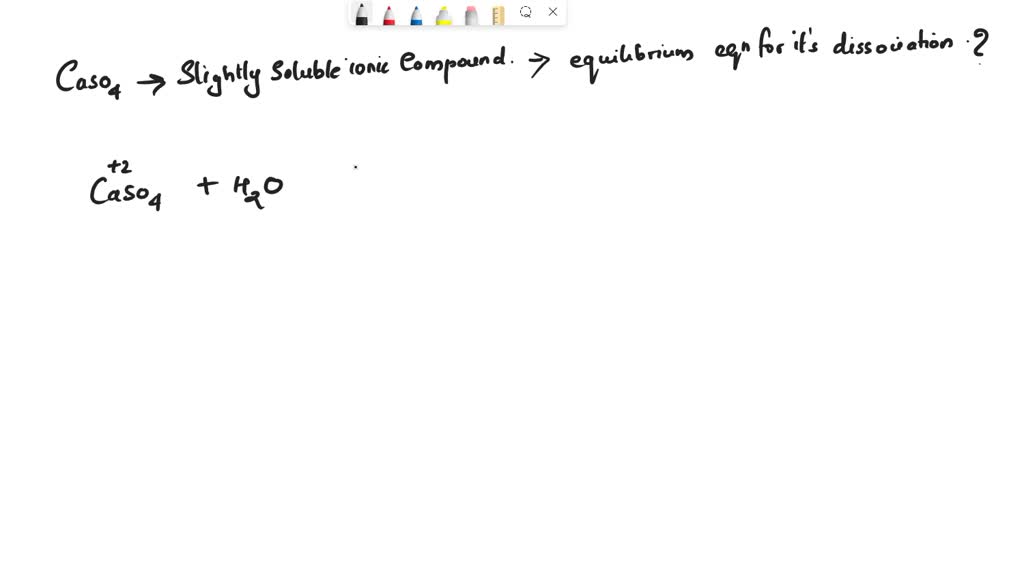 Caso₄ → Slightly Soluble ionic Compound. → equilibrium eqn for it's dissociation.?
+2
Caso₄ + H₂O